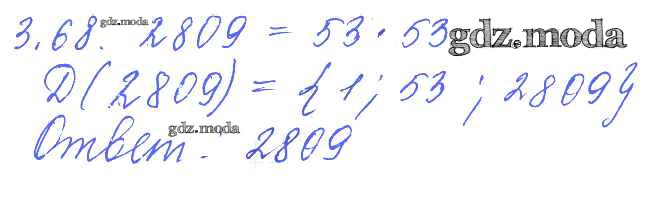 3.68. gdz.moda 2809 = 53 · 53 gdz.moda
D(2809) = {1; 53; 2809}
Ответ. gdz.moda 2809